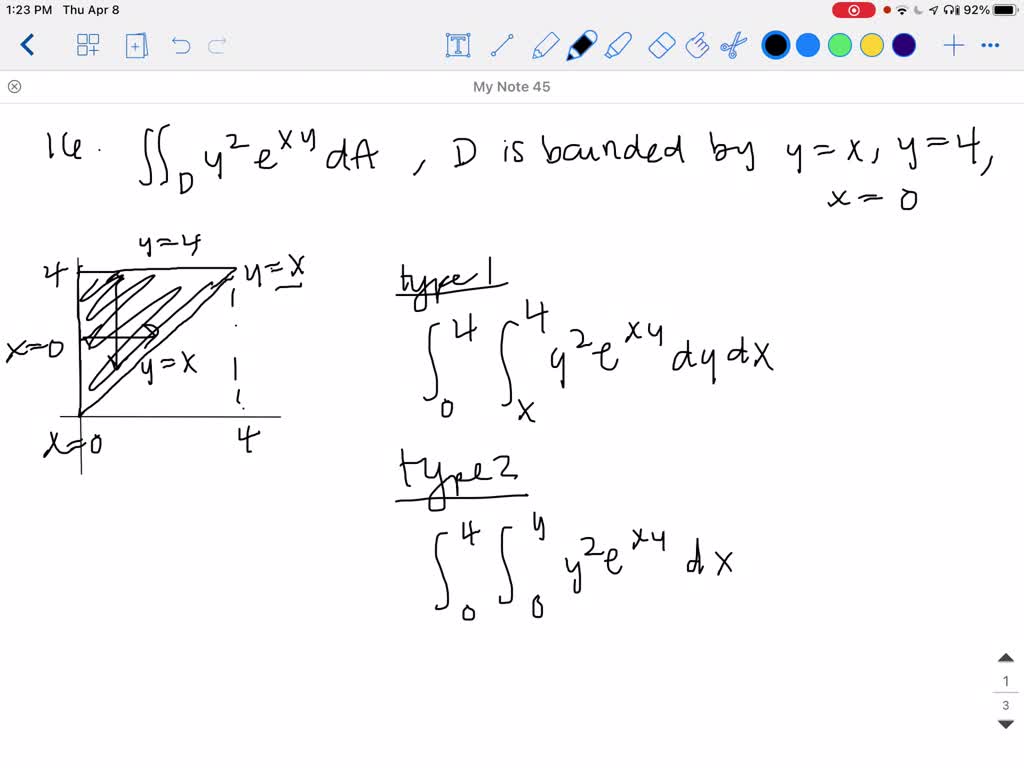 1:23 PM Thu Apr 8 92%
My Note 45
16. ∬_D y²e^{xy} dA , D is bounded by y=x, y=4,
x=0
y=4
4 y=x
x=0
y=x
x=0 4
type 1
∫_0^4 ∫_x^4 y²e^{xy} dy dx
type 2
∫_0^4 ∫_0^y y²e^{xy} dx
1
3